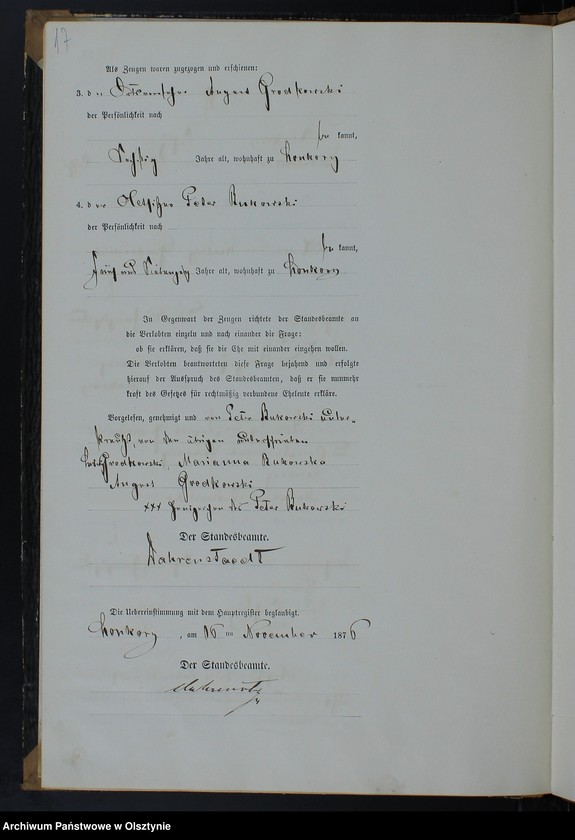 17
Als Zeugen waren zugezogen und erschienen:
3. d er August Grodkowski
der Persönlichkeit nach
be kannt,
Sechszig Jahre alt, wohnhaft zu Lonkorz
4. d er Peter Bukowski
der Persönlichkeit nach
be kannt,
fünf und Siebenzig Jahre alt, wohnhaft zu Lonkorz
In Gegenwart der Zeugen richtete der Standesbeamte an
die Verlobten einzeln und nach einander die Frage:
ob sie erklären, daß sie die Ehe mit einander eingehen wollen.
Die Verlobten beantworteten diese Frage bejahend und erfolgte
hierauf der Ausspruch des Standesbeamten, daß er sie nunmehr
kraft des Gesetzes für rechtmäßig verbundene Eheleute erkläre.
Vorgelesen, genehmigt und von Peter Bukowski unter-
kreuzt, von den übrigen unterschrieben
Grodkowski, Marianna Bukowska
August Grodkowski
+++ Handzeichen des Peter Bukowski
Der Standesbeamte.
Wahrenstaedt
Die Uebereinstimmung mit dem Hauptregister beglaubigt.
Lonkorz, am 16 ten November 1876
Der Standesbeamte.
Archiwum Państwowe w Olsztynie